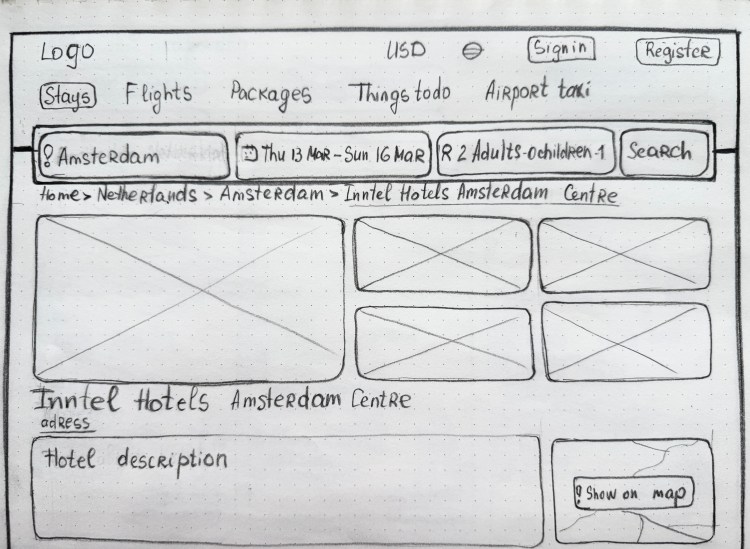 Logo USD Sign in Register
Stays Flights Packages Things to do Airport taxi
Amsterdam Thu 13 Mar - Sun 16 Mar 2 Adults-0children-1 Search
Home > Netherlands > Amsterdam > Inntel Hotels Amsterdam Centre
Inntel Hotels Amsterdam Centre
adress
Hotel description
Show on map